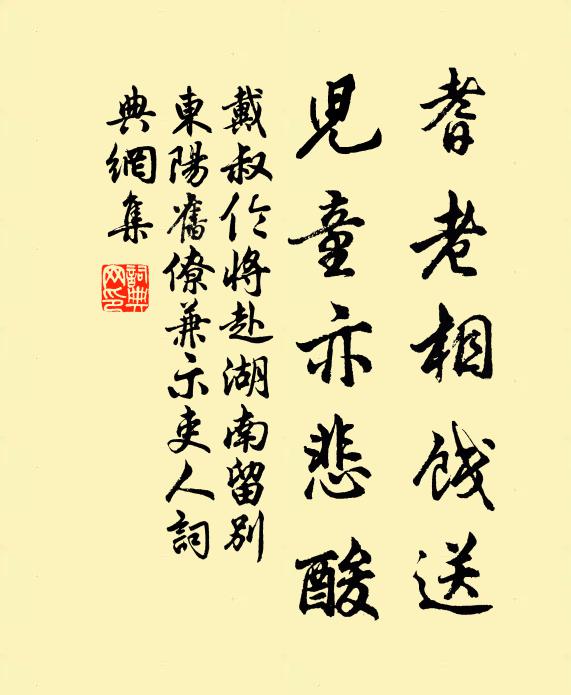 耆老相餞送
兒童亦悲酸
戴叔伦將赴湖南留別
東陽舊僚兼示吏人詞
典網集
詞典
网印